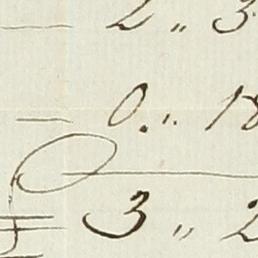 — 2 „ 3
— 0. „ 18
3 „ 2